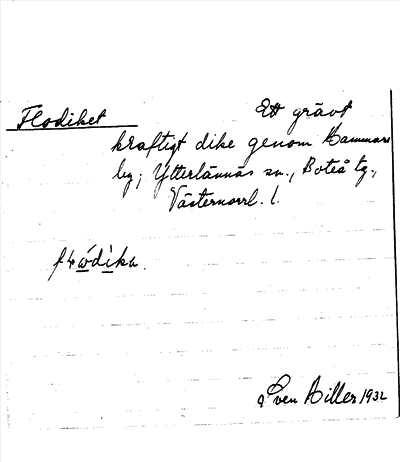 Flodiket
Ett grävt
kraftigt dike genom Hammars
by; Ytterlännäs sn., Boteå tg.,
Västernorrl. l.
Sven Hiller 1932